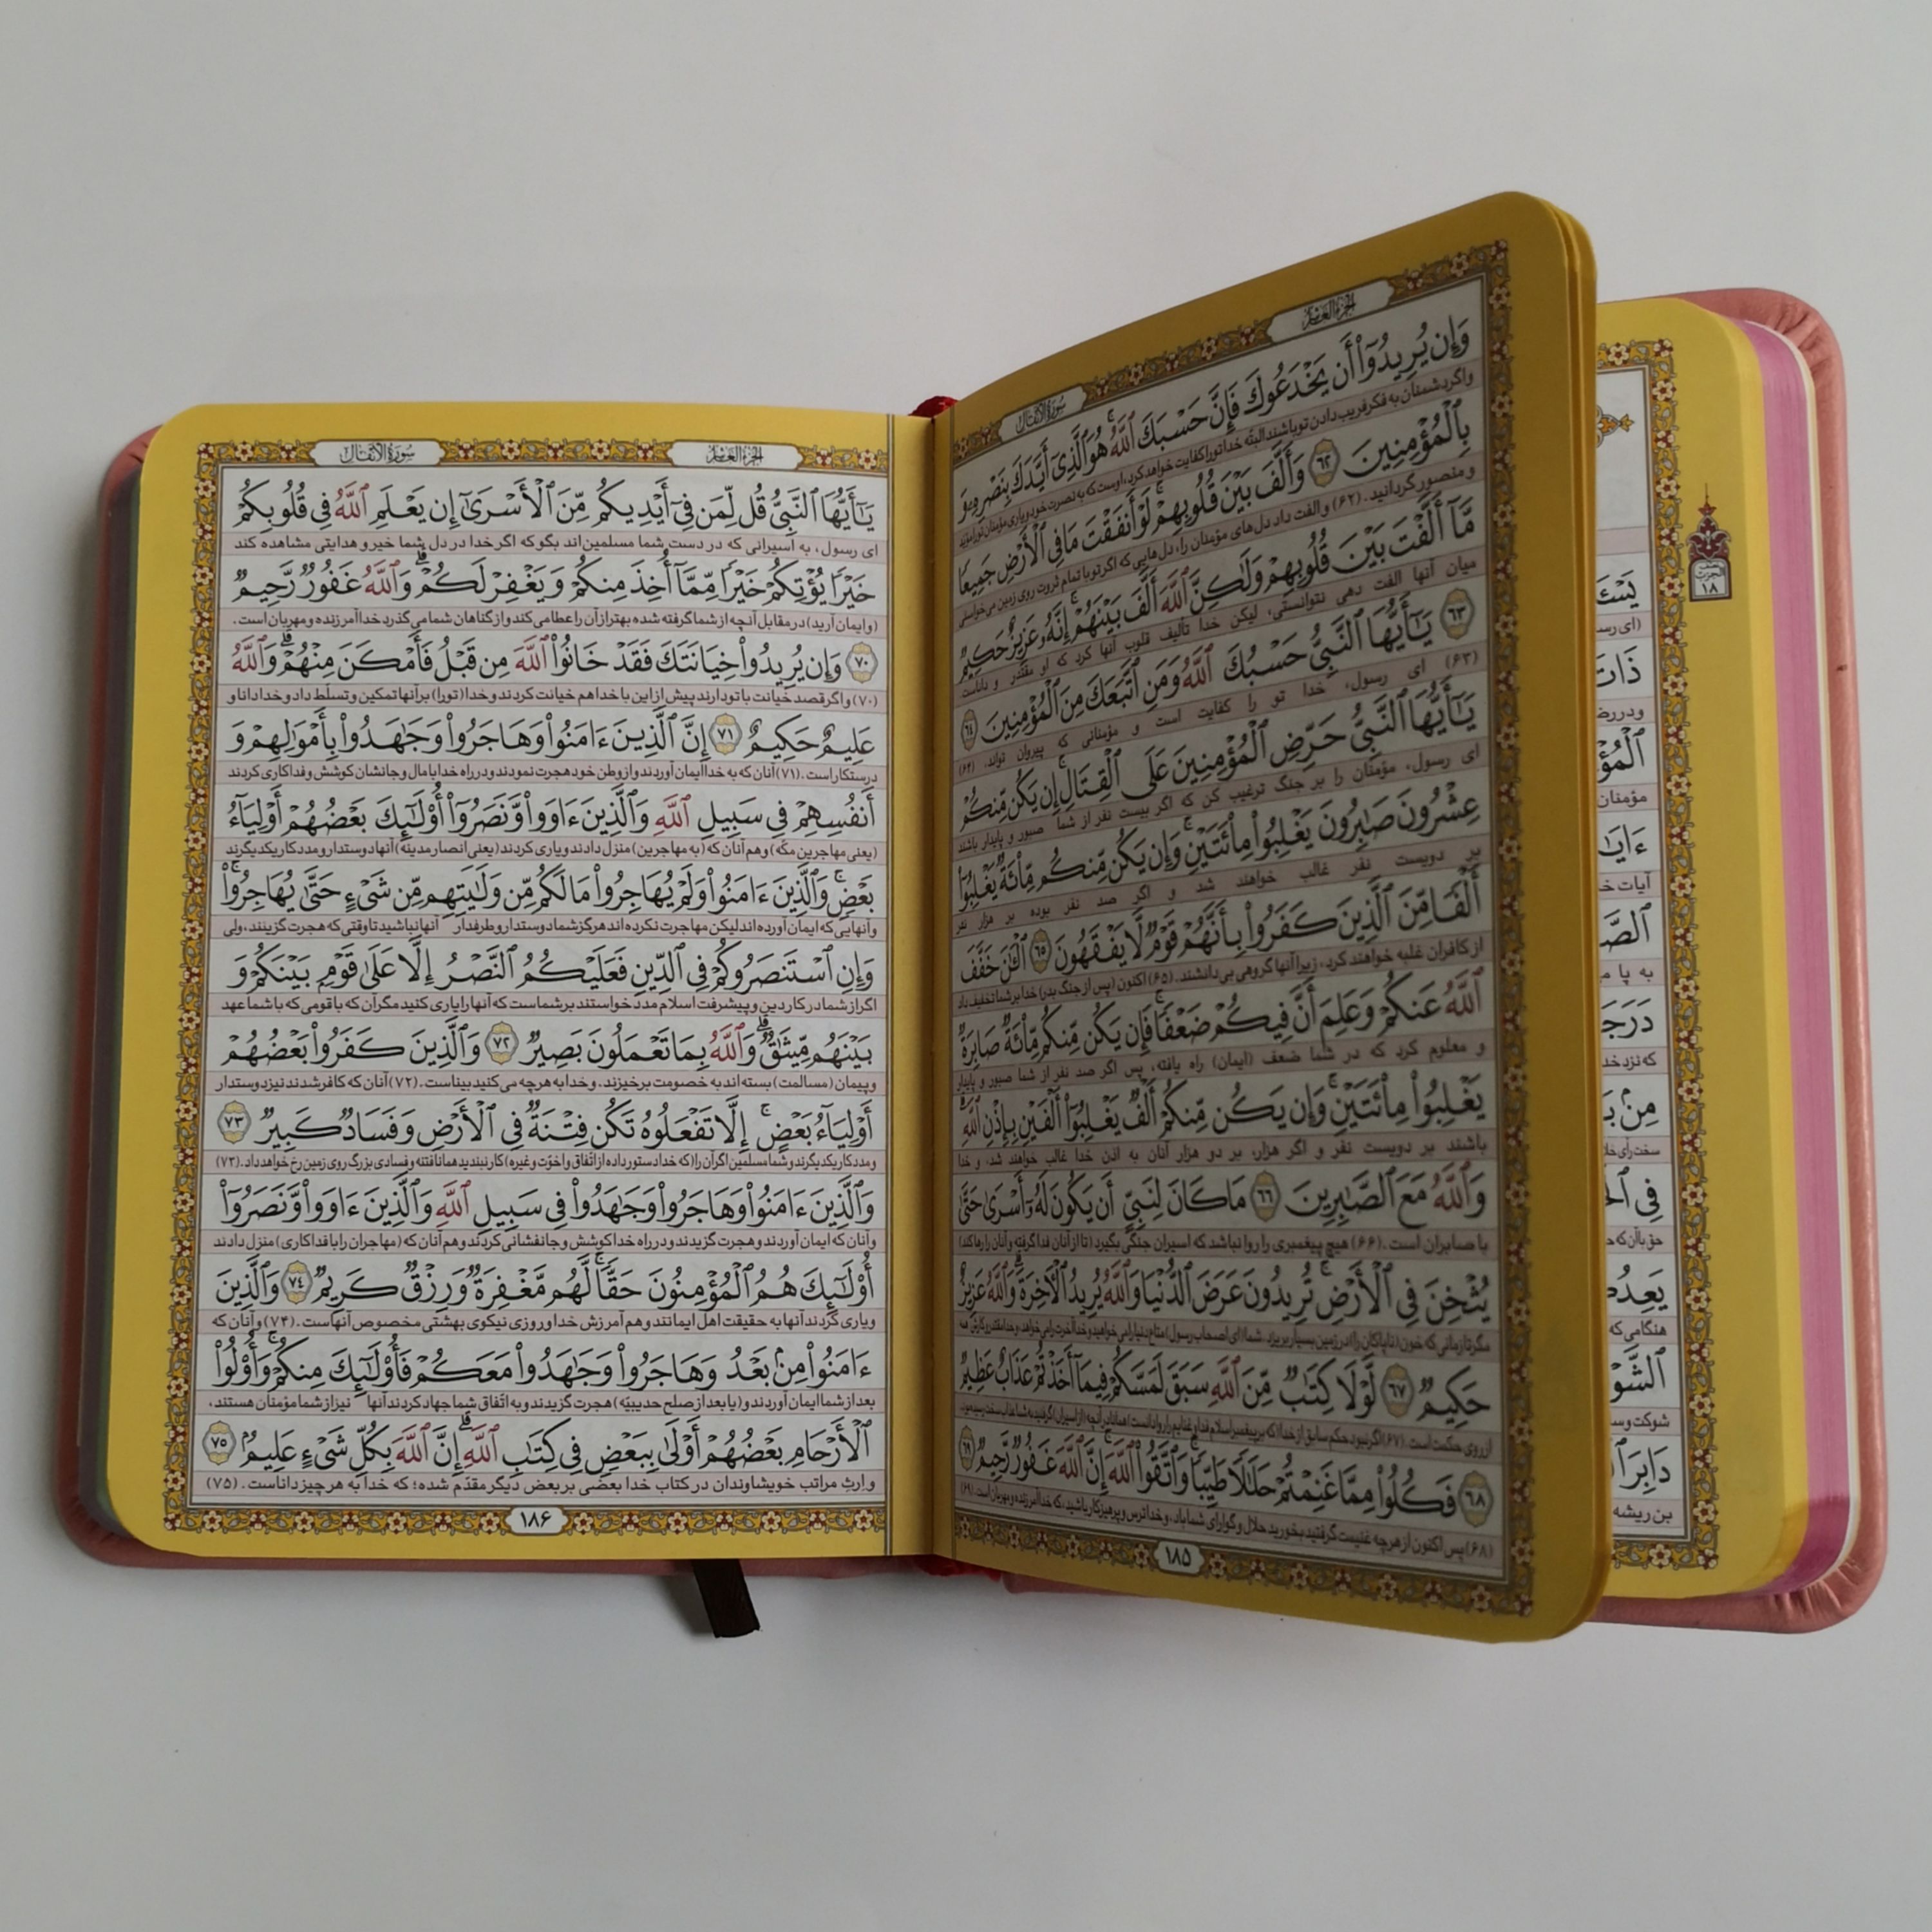 الجزء العاشر
سورة الأنفال
وَإِن يُرِيدُوٓاْ أَن يَخۡدَعُوكَ فَإِنَّ حَسۡبَكَ ٱللَّهُۚ هُوَ ٱلَّذِيٓ أَيَّدَكَ بِنَصۡرِهِۦ وَ
واگر دشمنان به فکر فریب دادن تو باشند البته خدا تو را کفایت خواهد کرد، اوست که به نصرت خود و یاری مؤمنان تو را مؤید
بِٱلۡمُؤۡمِنِينَ ۶۲ وَأَلَّفَ بَيۡنَ قُلُوبِهِمۡۚ لَوۡ أَنفَقۡتَ مَا فِي ٱلۡأَرۡضِ جَمِيعٗا
و منصور گردانید. (۶۲) و الفت داد دل‌های مؤمنان را، دل‌هایی که اگر تو با تمام ثروت روی زمین می‌خواستی
مَّآ أَلَّفۡتَ بَيۡنَ قُلُوبِهِمۡ وَلَٰكِنَّ ٱللَّهَ أَلَّفَ بَيۡنَهُمۡۚ إِنَّهُۥ عَزِيزٌ حَكِيمٞ
میان آنها الفت دهی نتوانستی، لیکن خدا تألیف قلوب آنها کرد که او مقتدر و داناست
۶۳ يَٰٓأَيُّهَا ٱلنَّبِيُّ حَسۡبُكَ ٱللَّهُ وَمَنِ ٱتَّبَعَكَ مِنَ ٱلۡمُؤۡمِنِينَ ۶۴
(۶۳) ای رسول، خدا تو را کفایت است و مؤمنانی که پیروان تواند. (۶۴)
يَٰٓأَيُّهَا ٱلنَّبِيُّ حَرِّضِ ٱلۡمُؤۡمِنِينَ عَلَى ٱلۡقِتَالِۚ إِن يَكُن مِّنكُمۡ
ای رسول، مؤمنان را بر جنگ ترغیب کن که اگر بیست نفر از شما صبور و پایدار باشند
عِشۡرُونَ صَٰبِرُونَ يَغۡلِبُواْ مِاْئَتَيۡنِۚ وَإِن يَكُن مِّنكُم مِّاْئَةٞ يَغۡلِبُوٓاْ
بر دویست نفر غالب خواهند شد و اگر صد نفر بوده بر هزار نفر
أَلۡفٗا مِّنَ ٱلَّذِينَ كَفَرُواْ بِأَنَّهُمۡ قَوۡمٞ لَّا يَفۡقَهُونَ ۶۵ ٱلۡـَٰٔنَ خَفَّفَ
از کافران غلبه خواهند کرد، زیرا آنها گروهی بی‌دانشند. (۶۵) اکنون (پس از جنگ بدر) خدا بر شما تخفیف داد
ٱللَّهُ عَنكُمۡ وَعَلِمَ أَنَّ فِيكُمۡ ضَعۡفٗاۚ فَإِن يَكُن مِّنكُم مِّاْئَةٞ صَابِرَةٞ
و معلوم کرد که در شما ضعف (ایمان) راه یافته، پس اگر صد نفر از شما صبور و پایدار
يَغۡلِبُواْ مِاْئَتَيۡنِۚ وَإِن يَكُن مِّنكُمۡ أَلۡفٞ يَغۡلِبُوٓاْ أَلۡفَيۡنِ بِإِذۡنِ ٱللَّهِۗ
باشند بر دویست نفر و اگر هزار، بر دو هزار آنان به اذن خدا غالب خواهند شد، و خدا
وَٱللَّهُ مَعَ ٱلصَّٰبِرِينَ ۶۶ مَا كَانَ لِنَبِيٍّ أَن يَكُونَ لَهُۥٓ أَسۡرَىٰ حَتَّىٰ
با صابران است. (۶۶) هیچ پیغمبری را روا نباشد که اسیران جنگی بگیرد (تا از آنان فدا گرفته و آنان را رها کند)
يُثۡخِنَ فِي ٱلۡأَرۡضِۚ تُرِيدُونَ عَرَضَ ٱلدُّنۡيَا وَٱللَّهُ يُرِيدُ ٱلۡأٓخِرَةَۗ وَٱللَّهُ عَزِيزٌ
مگر تا زمانی که خون (ناپاکان را) در زمین بسیار بریزد. شما (ای اصحاب رسول) متاع دنیا را می‌خواهید و خدا آخرت را می‌خواهد، و خدا مقتدر و کارش
حَكِيمٞ ۶۷ لَّوۡلَا كِتَٰبٞ مِّنَ ٱللَّهِ سَبَقَ لَمَسَّكُمۡ فِيمَآ أَخَذۡتُمۡ عَذَابٌ عَظِيمٞ
از روی حکمت است. (۶۷) اگر نبود حکم سابق از خدا
۶۸ فَكُلُواْ مِمَّا غَنِمۡتُمۡ حَلَٰلٗا طَيِّبٗاۚ وَٱتَّقُواْ ٱللَّهَۚ إِنَّ ٱللَّهَ غَفُورٞ رَّحِيمٞ ۶۹
(۶۸) پس اکنون از هرچه غنیمت گرفتید بخورید حلال و گوارای شما باد، و خدا ترس و پرهیزکار باشید، که خدا آمرزنده و مهربان است. (۶۹)
۱۸۵
الجزء العاشر
سورة الأنفال
يَٰٓأَيُّهَا ٱلنَّبِيُّ قُل لِّمَن فِيٓ أَيۡدِيكُم مِّنَ ٱلۡأَسۡرَىٰٓ إِن يَعۡلَمِ ٱللَّهُ فِي قُلُوبِكُمۡ
ای رسول، به اسیرانی که در دست شما مسلمین‌اند بگو که اگر خدا در دل شما خیر و هدایتی مشاهده کند
خَيۡرٗا يُؤۡتِكُمۡ خَيۡرٗا مِّمَّآ أُخِذَ مِنكُمۡ وَيَغۡفِرۡ لَكُمۡۗ وَٱللَّهُ غَفُورٞ رَّحِيمٞ
(و ایمان آرید) در مقابل آنچه از شما گرفته شده بهتر از آن را عطا می کند و از گناهان شما می گذرد خدا آمرزنده و مهربان است.
۷۰ وَإِن يُرِيدُواْ خِيَانَتَكَ فَقَدۡ خَانُواْ ٱللَّهَ مِن قَبۡلُ فَأَمۡكَنَ مِنۡهُمۡۗ وَٱللَّهُ
(۷۰) و اگر قصد خیانت با تو دارند پیش از این با خدا هم خیانت کردند و خدا (تو را) بر آنها تمکین و تسلّط داد و خدا دانا و
عَلِيمٌ حَكِيمٌ ۷۱ إِنَّ ٱلَّذِينَ ءَامَنُواْ وَهَاجَرُواْ وَجَٰهَدُواْ بِأَمۡوَٰلِهِمۡ وَ
درستکار است. (۷۱) آنان که به خدا ایمان آوردند و از وطن خود هجرت نمودند و در راه خدا با مال و جانشان کوشش و فداکاری کردند
أَنفُسِهِمۡ فِي سَبِيلِ ٱللَّهِ وَٱلَّذِينَ ءَاوَواْ وَّنَصَرُوٓاْ أُوْلَٰٓئِكَ بَعۡضُهُمۡ أَوۡلِيَآءُ
(یعنی مهاجرین مکّه) و هم آنان که (به مهاجرین) منزل دادند و یاری کردند (یعنی انصار مدینه) آنها دوستدار و مددکار یکدیگرند
بَعۡضٖۚ وَٱلَّذِينَ ءَامَنُواْ وَلَمۡ يُهَاجِرُواْ مَا لَكُم مِّن وَلَٰيَتِهِم مِّن شَيۡءٍ حَتَّىٰ يُهَاجِرُواْۚ
و آنهایی که ایمان آورده اند لیکن مهاجرت نکرده اند هرگز شما دوستدار و طرفدار آنها نباشید تا وقتی که هجرت گزینند، ولی
وَإِنِ ٱسۡتَنصَرُوكُمۡ فِي ٱلدِّينِ فَعَلَيۡكُمُ ٱلنَّصۡرُ إِلَّا عَلَىٰ قَوۡمِۭ بَيۡنَكُمۡ وَ
اگر از شما در کار دین و پیشرفت اسلام مدد خواستند بر شماست که آنها را یاری کنید مگر آن که با قومی که با شما عهد
بَيۡنَهُم مِّيثَٰقٞۗ وَٱللَّهُ بِمَا تَعۡمَلُونَ بَصِيرٞ ۷۲ وَٱلَّذِينَ كَفَرُواْ بَعۡضُهُمۡ
و پیمان (مسالمت) بسته اند به خصومت برخیزند، و خدا به هر چه می کنید بیناست. (۷۲) آنان که کافر شدند نیز دوستدار
أَوۡلِيَآءُ بَعۡضٍۚ إِلَّا تَفۡعَلُوهُ تَكُن فِتۡنَةٞ فِي ٱلۡأَرۡضِ وَفَسَادٞ كَبِيرٞ ۷۳
و مددکار یکدیگرند و شما مسلمین اگر آن را (که خدا دستور داده از اتّفاق و اخوّت و غیره) کار نبندید همانا فتنه و فسادی بزرگ روی زمین رخ خواهد داد. (۷۳)
وَٱلَّذِينَ ءَامَنُواْ وَهَاجَرُواْ وَجَٰهَدُواْ فِي سَبِيلِ ٱللَّهِ وَٱلَّذِينَ ءَاوَواْ وَّنَصَرُوٓاْ
و آنان که ایمان آوردند و هجرت گزیدند و در راه خدا کوشش و جانفشانی کردند و هم آنان که (مهاجران را با فداکاری) منزل دادند
أُوْلَٰٓئِكَ هُمُ ٱلۡمُؤۡمِنُونَ حَقّٗاۚ لَّهُم مَّغۡفِرَةٞ وَرِزۡقٞ كَرِيمٞ ۷۴ وَٱلَّذِينَ
و یاری کردند آنها به حقیقت اهل ایمانند و هم آمرزش خدا و روزی نیکوی بهشتی مخصوص آنهاست. (۷۴) و آنان که
ءَامَنُواْ مِنۢ بَعۡدُ وَهَاجَرُواْ وَجَٰهَدُواْ مَعَكُمۡ فَأُوْلَٰٓئِكَ مِنكُمۡۚ وَأُوْلُواْ
بعد از شما ایمان آوردند و (یا بعد از صلح حدیبیّه) هجرت گزیدند و به اتّفاق شما جهاد کردند آنها نیز از شما مؤمنان هستند،
ٱلۡأَرۡحَامِ بَعۡضُهُمۡ أَوۡلَىٰ بِبَعۡضٖ فِي كِتَٰبِ ٱللَّهِۗ إِنَّ ٱللَّهَ بِكُلِّ شَيۡءٍ عَلِيمُۢ ۷۵
و ارث مراتب خویشاوندان در کتاب خدا بعضی بر بعض دیگر مقدّم شده؛ که خدا به هر چیز داناست. (۷۵)
۱۸۶